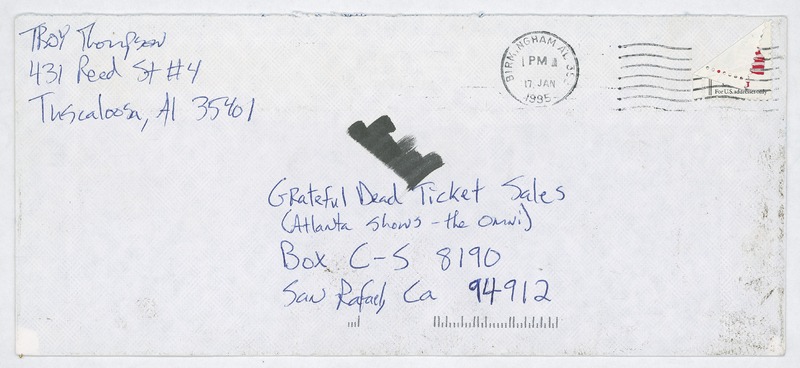 Troy Thompson
431 Reed St #4
Tuscaloosa, Al 35401
BIRMINGHAM AL 35
PM
17 JAN
1995
For U.S. addresses only
Grateful Dead Ticket Sales
(Atlanta shows - the Omni)
Box C-S 8190
San Rafael, Ca 94912